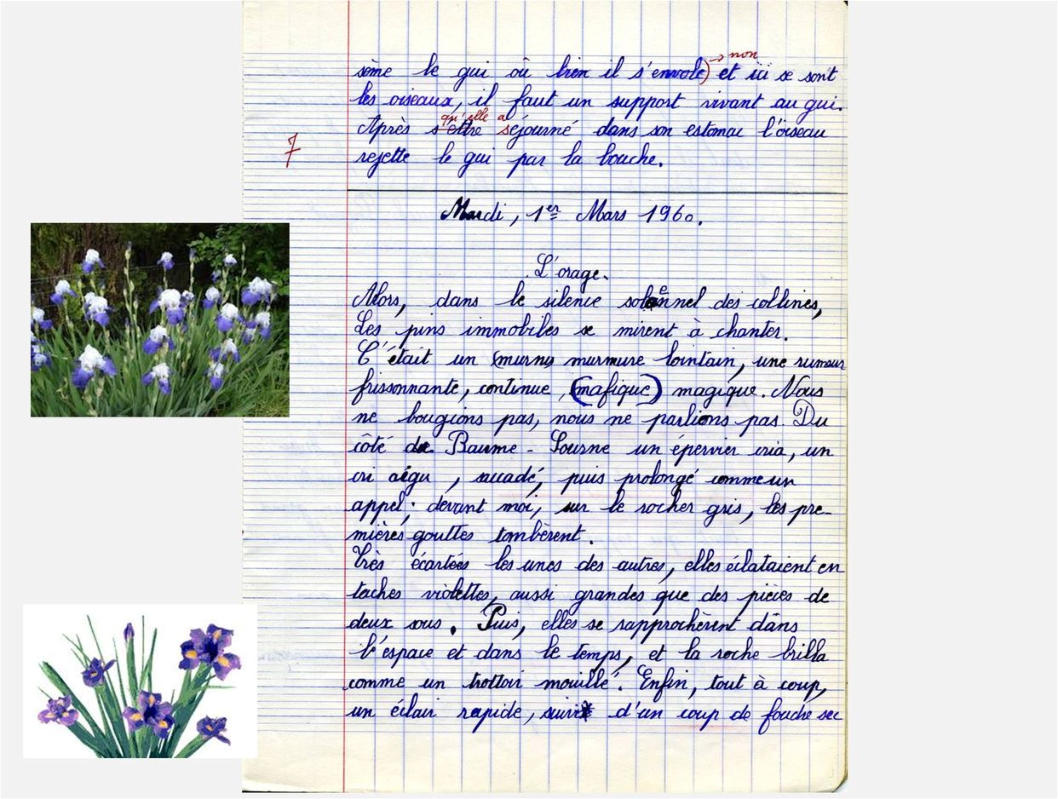 sème le gui où bien il s'envole) → non et ici se sont
les oiseaux, il faut un support vivant au gui.
qu'elle a
Après s'être séjourné dans son estomac l'oiseau
7
rejette le gui par la bouche.
Mardi, 1er Mars 1960.
L'orage.
Alors, dans le silence solennel des collines,
Les pins immobiles se mirent à chanter.
C'était un (murnu murmure lointain, une rumeur
frissonnante, continue, (mafique) magique. Nous
ne bougions pas, nous ne parlions pas. Du
côté de Baume-Sourne un épervier cria, un
cri aigu, saccadé, puis prolongé comme un
appel; devant moi, sur le rocher gris, les pre-
mières gouttes tombèrent.
Très écartées les unes des autres, elles éclataient en
taches violettes, aussi grandes que des pièces de
deux sous. Puis, elles se rapprochèrent dans
l'espace et dans le temps, et la roche brilla
comme un trottoir mouillé. Enfin, tout à coup,
un éclair rapide, suivi d'un coup de foudre sec